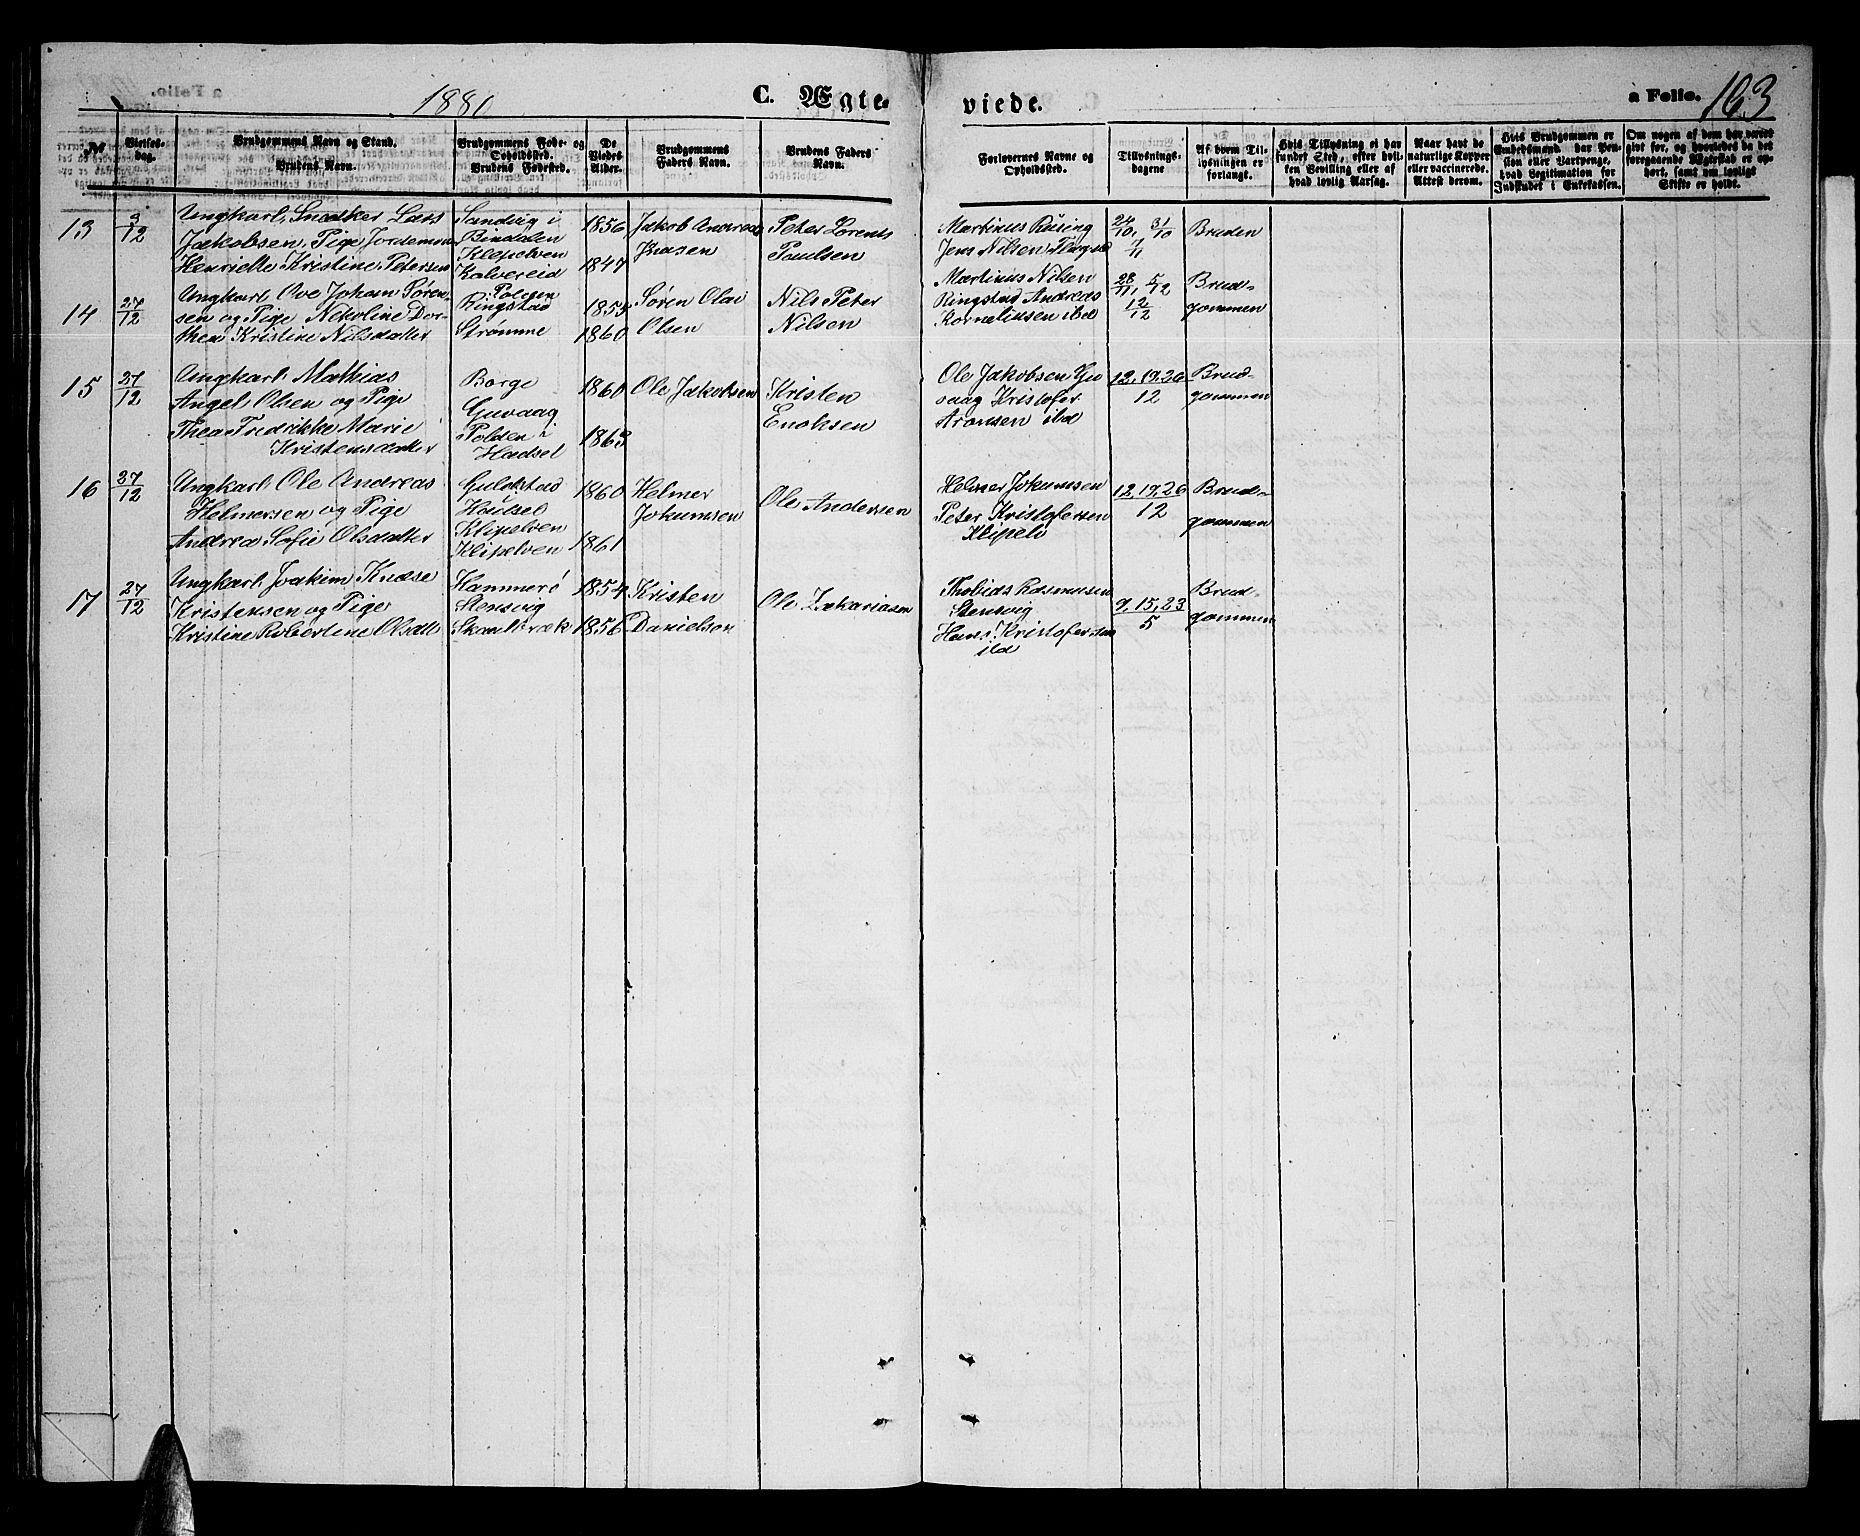 1880
C. Ægte-
viede.
a Folio. 163
№
Vielses-
dag.
Brudgommens Navn og Stand.
Brudens Navn.
Brudgommens Føde- og
Opholdssted.
Brudens Fødested.
De
Viedes
Alder.
Brudgommens
Faders Navn.
Brudens Faders
Navn.
Forlovernes Navne og
Opholdssted.
Tillysnings-
dagene
Af hvem Til-
lysningen er
forlangt.
Hvis Tillysning ei har
fundet Sted, efter hvil-
ken Bevilling eller af
hvad lovlig Aarsag.
Naar havt de
naturlige Kopper
eller vaccinerede.
Attest derom.
Hvis Brudgommen er
Embedsmand, har Pen-
sion eller Vartpenge,
hvad Legitimation for
Indskudet i Enkekassen.
Om nogen af dem har været
givt før, og hvorledes da det
foregaaende Ægteskab er op-
hørt, samt om lovligt
Skifte er holdt.
13
3/12
Ungkarl, Snedker Lars
Jakobsen, Pige, Jordemor
Henriette Kristine Petersen
Sandvig i
Bindalen
Klepelven
Kolvereid
1856
1847
Jakob Andreas
Knasen
Peter Lorents
Paulsen
Martinus Rising
Jens Nilsen
24/10, 31/10
7/11
Bruden
14
27/12
Ungkarl Ove Johan Søren-
sen og Pige Nikoline Dor-
thea Kristine Nilsdatter
Polden
Ringstad
Strømme
1855
1860
Søren Olai
Olsen
Nils Peter
Nilsen
Martinus Nilsen
Ringstad Andreas
Kornelinsen ibd
28/11, 5/12
12/12
Brud-
gommen
15
27/12
Ungkarl Mathias
Angel Olsen og Pige
Thea Fredrikke Marie
Kristensdatter
Borge
Guvaag
Polden i
Hadsel
1860
1863
Ole Jakobsen
Kristen
Enoksen
Ole Jakobsen Gu
vaag Kristofer
Aronsen ibd
12, 19, 26
12
Brud-
gommen
16
27/12
Ungkarl Ole Andreas
Helmersen og Pige
Andrea Sofie Olsdatter
Guldstad
Hadsel
Klipelven
Klipelven
1860
1861
Helmer
Jokumsen
Ole Andersen
Helmer Jokumsen
Peter Kristofersen
Klipelv
12, 19, 26
12
Brud-
gommen
17
27/12
Ungkarl Joakim Knudse
Kristensen og Pige
Kristine Robertine Olsdatt
Hammerö
Stensvig
1854
1856
Kristen
Danielson
Ole Zakariasen
Thobias Rasmusen
Stensvig
Hans Kristofersen
ibd
9, 15, 23
5
Brud-
gommen